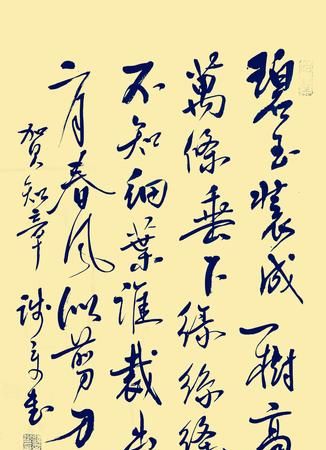 碧玉裝成一樹高
萬條垂下綠絲絛
不知細葉誰裁出
二月春风似剪刀
賀知章詩